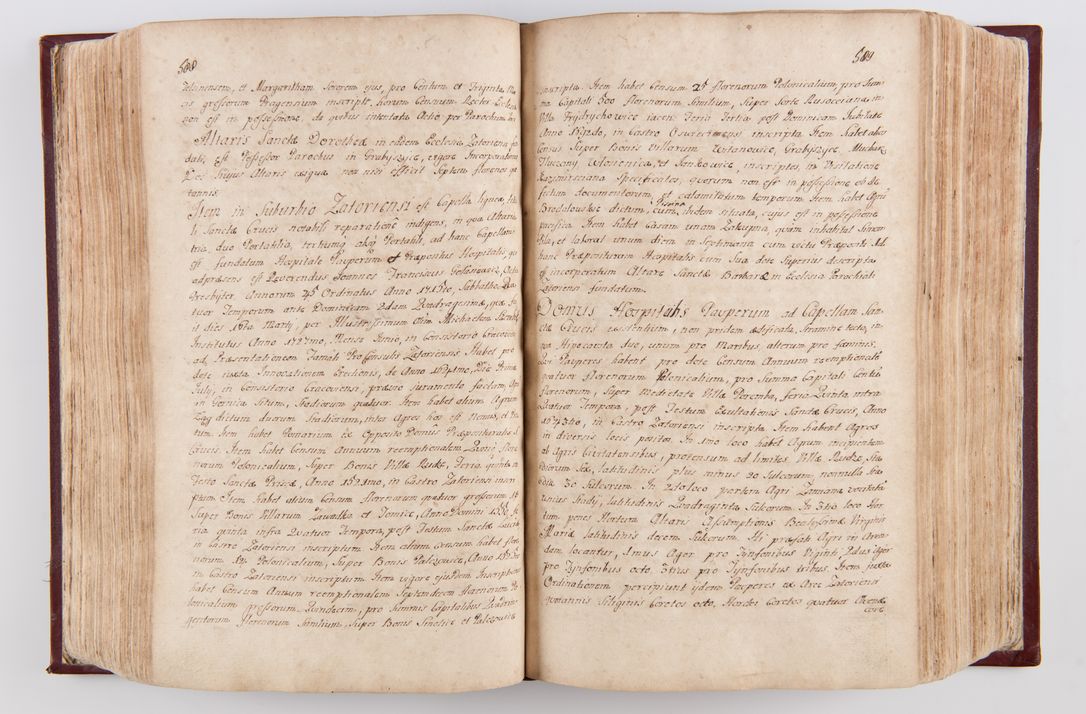 588
et Margaritham Sororem ejus, pro Centum et Triginta
grossorum Pragensium inscripti, horum Censuum Rector Ecclesiæ
non est in possessione, de quibus intentata Actio per Parochum
Altaris Sanctæ Dorotheæ in eadem Ecclesia Zatoriensi
dati, est Possessor Parochus in Grabyszyce, ergone Incorporatione
Dos hujus Altaris exiqua non nisi efficit Septem florenos
tannis.
Item in Suburbio Zatoriensi est Capella lignea, Tituli
Sanctæ Crucis notabili reparatione indigens, in qua Altaria
tria, duo Portatilia, tertium absq Portatili, ad hanc Capellam
est fundatum Hospitale Pauperum et Præpositus Hospitalis,
adpræsens est Reverendus Joannes Franciscus
Presbyter, Annorum 45 Ordinatus Anno 1715to, Sabbatho
tuor Temporum ante Dominicam 2dam Quadragesimæ, quæ
it dies 16ta Marty, per Illustrissimum olim Michaelem
Institutus Anno 1727mo, Mense Junio, in Consistorio Cracoviensi
ad Præsentationem Famati Proconsulis Zatoriensis, Habet pro
dote juxta Innovationem Erectionis, de Anno Die Prima
July, in Consistorio Cracoviensi, prævio juramento factam,
in Gornica Situm, Stadiorum quatuor. Item habet alium Agrum
Lag dictum duorum Stadiorum, inter Agros hos est Nemus, et
tum. Item habet Pomarium ex Opposito Domûs Præpositurâlis S.
Crucis. Item habet Censum Annuum reemptionalem
norum Polonicalium, Super Bonis Villæ Rudze, Feria quinta
Festo Sanctæ Priscæ, Anno in Castro Zatoriensi inscri
ptum. Item habet alium Censum florenorum quatuor grossorum
Super Bonis Villarum Zawadka et Tomice, Anno Domini
ria quinta infra Quatuor Tempora, post Festum Sanctæ Luciæ
in Castro Zatoriensi inscriptum. Item alium Censum habet flore
norum Polonicalium, Super Bonis Palczowice, Anno
in Castro Zatoriensi inscriptum. Item vigore ejusdem Inscriptionis
habet Censum Annuum reemptionalem Septemdecem florenorum Po
lonicalium grossorum, Quindecim, pro Summis Capitalibus Quadrin
gentorum florenorum Similium, Super Bonis et Palczowice
589
inscripta. Item habet Censum florenorum Polonicalium, pro Sum
ma Capitali 300 florenorum Similium, Super Sorte Rusociana, in
Villa Frydrychowice jacen: Feria Tertia post Dominicam Jubilate
Anno in Castro Osviecimensi inscripta. Item habet alios
Census Super Bonis Villarum Witanowice, Grabyszyce
Tluczany, Wlonenica, et Jankowice, inscriptos, in Visitatione
Razimirsciana Specificatos, quorum non est in possessione ob de
fectum documentorum, et calamitatum temporum. Item habet Agrum
dictum, cum Piscina ibidem situata, cujus est in possessione
pacifica. Item habet Casam unam Zakupna, quam inhabitat Simon
et laborat unum diem in Septimana cum victu Præpositi. Ad
hanc Præposituram Hospitalis cum Sua dote Superius descripta
est incorporatum Altare Sanctæ Barbaræ in Ecclesia Parochiali
Zatoriensi fundatum.
Domus Hospitalis Pauperum ad Capellam San
ctæ Crucis existentium, non pridem ædificata, Stramine tecta, in
qua Hipocausta duo, unum pro Maribus, alterum pro fæminis.
Qui Pauperes habent pro dote Censum Annuum reemptionalem
quatuor florenorum Polonicalium, pro Summa Capitali Centum
florenorum, Super Medietate Villæ Poremba, feria Quinta intra
Quatuor Tempora, post Festum Exaltationis Sanctæ Crucis, Anno
in Castro Zatoriensi inscripta. Item habent Agros
in diversis locis positos. In 1mo loco habet Agrum incipientem
ab Agris Civitatensibus, protensum ad limites Villæ Rudze, Sta
diorum Sex, latitudinis plus minus 20 Sulcorum, nonnulla Sta
dia 30 Sulcorum. In 2do loco partem Agri Zimnna vocitatam
unius Stadij, latitudinis Quadraginta Sulcorum. In 3tio loco Hor
tum penes Hortum Altaris Assumptionis Beatissimæ Virginis
Mariæ, latitudinis decem Sulcorum. Hi præfati Agri in Aren
dam locantur, 1mus Ager pro Tynfonibus Viginti, 2dus Ager
pro Tynfonibus octo, 3tius pro Tynfonibus tribus. Item juxta
Ordinationem percipiunt ijdem Pauperes ex Arce Zatoriensi
quotannis Siliginis Coretos octo, Hordei Coretos quatuor Avenæ
Core